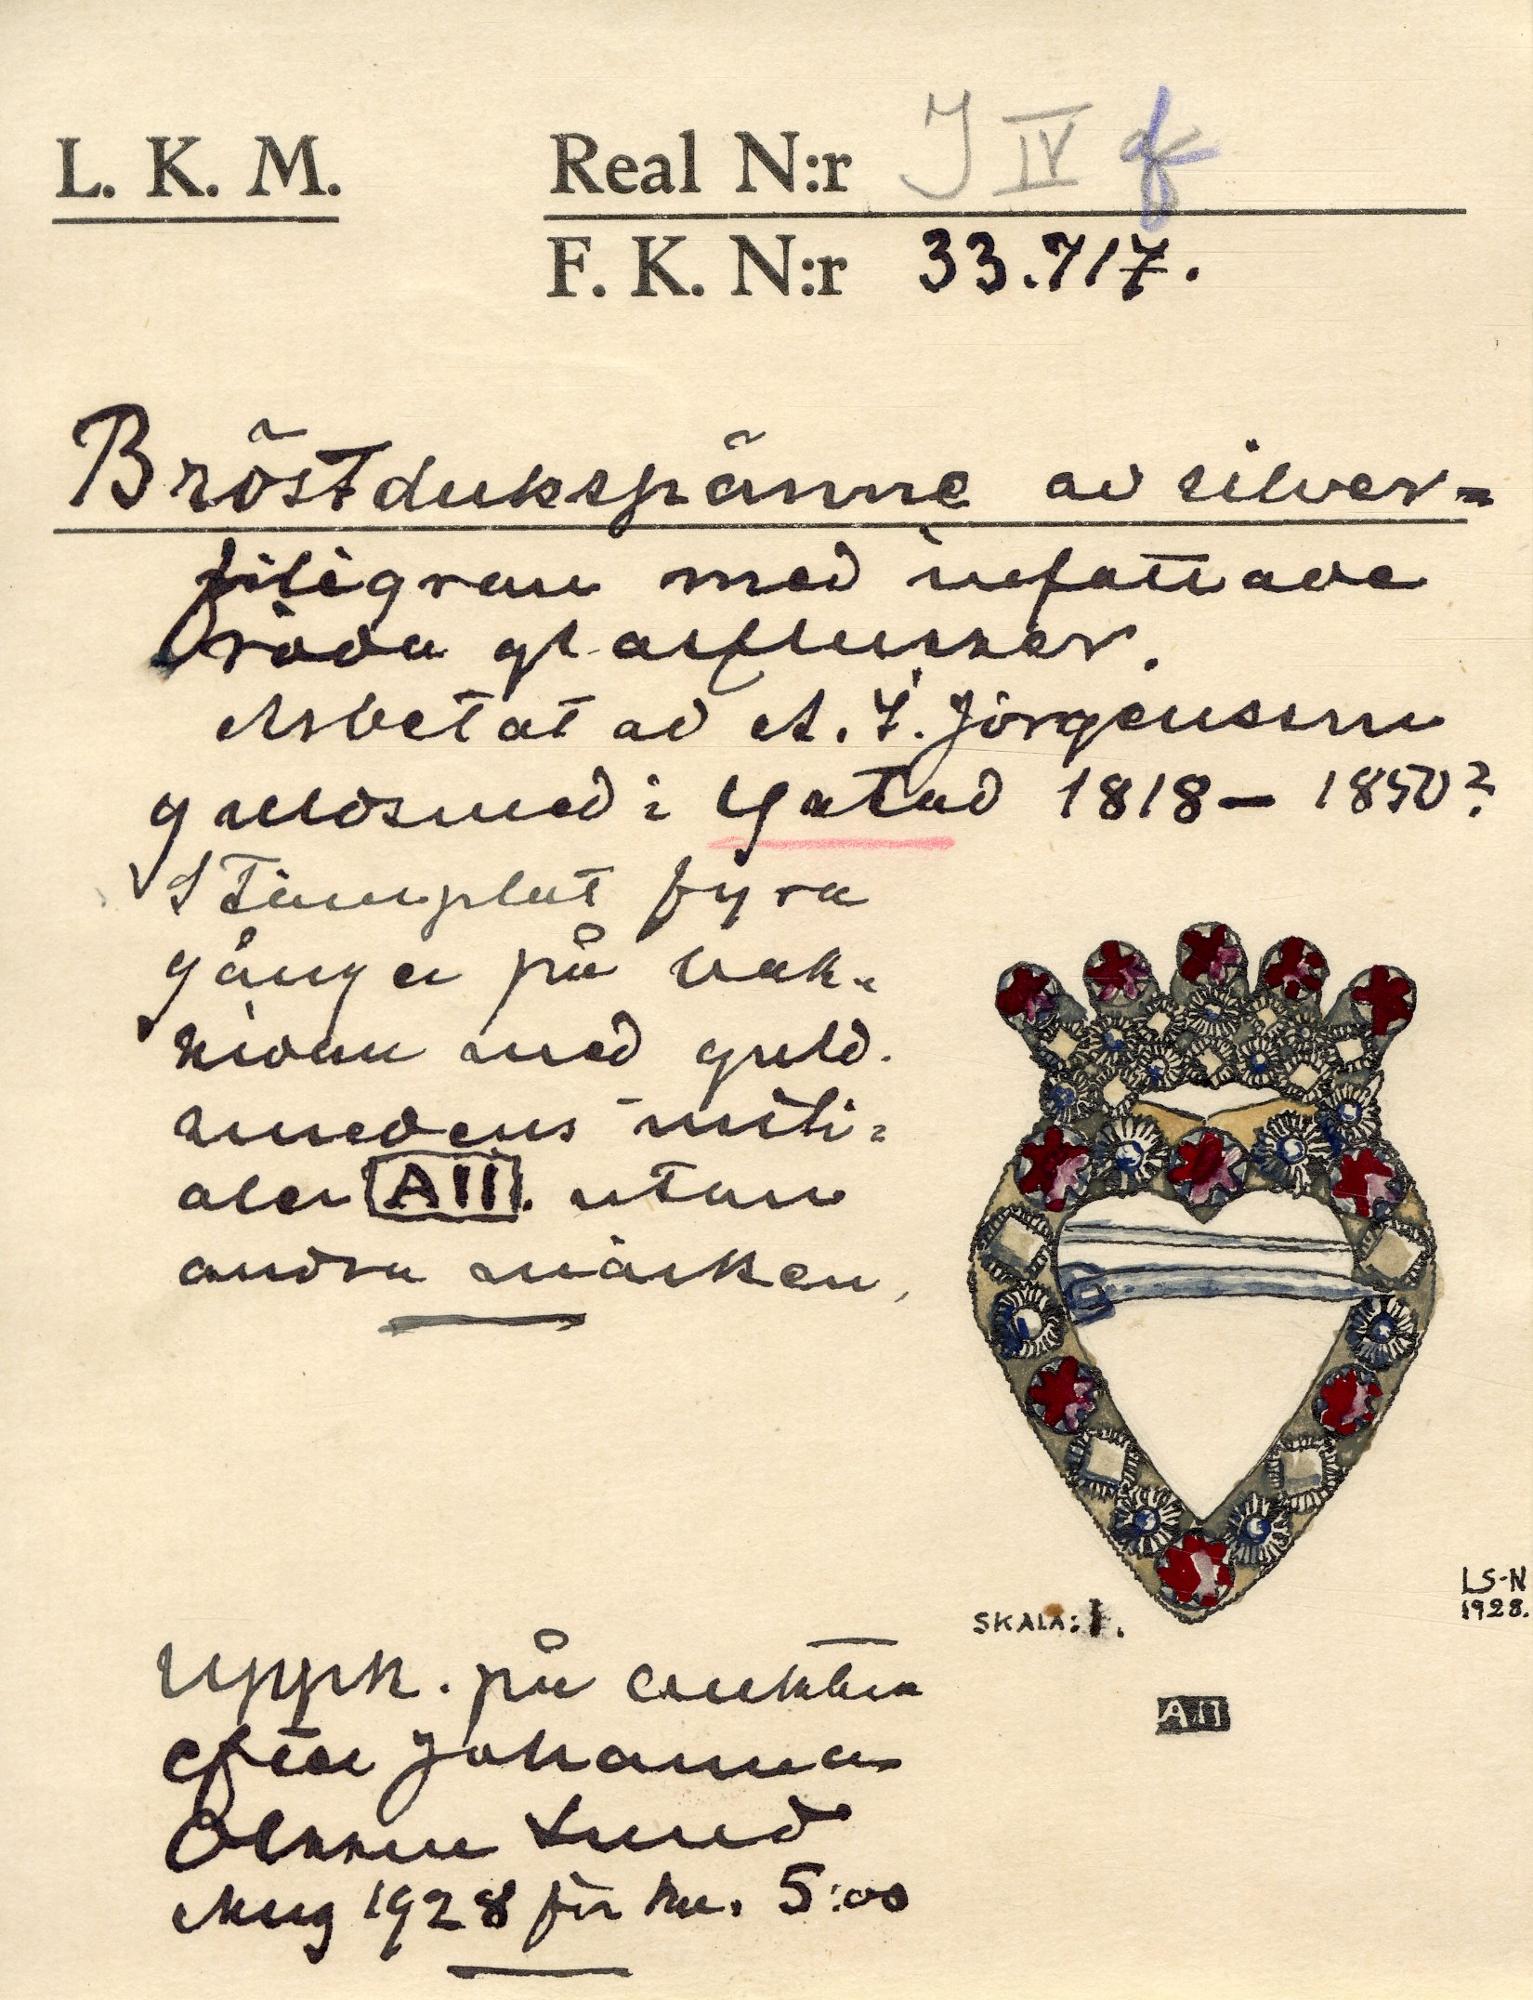 L. K. M.
Real N:r J IV f
F. K. N:r 33.717.
Bröstdukspänne av silver=
filigran med infattade
röda glasflusser.
Arbetat av A. I. Jörgensson
guldsmed i Ystad 1818— 1850?
Stämplat fyra
gånger på bak-
sidan med guld-
smedens initi=
aler AII. utan
andra märken,
SKALA: 1/1.
LS-N
1928.
AII
Uppk. på auktion
efter Johanna
Olsson Lund
Aug 1928 för kr. 5:00